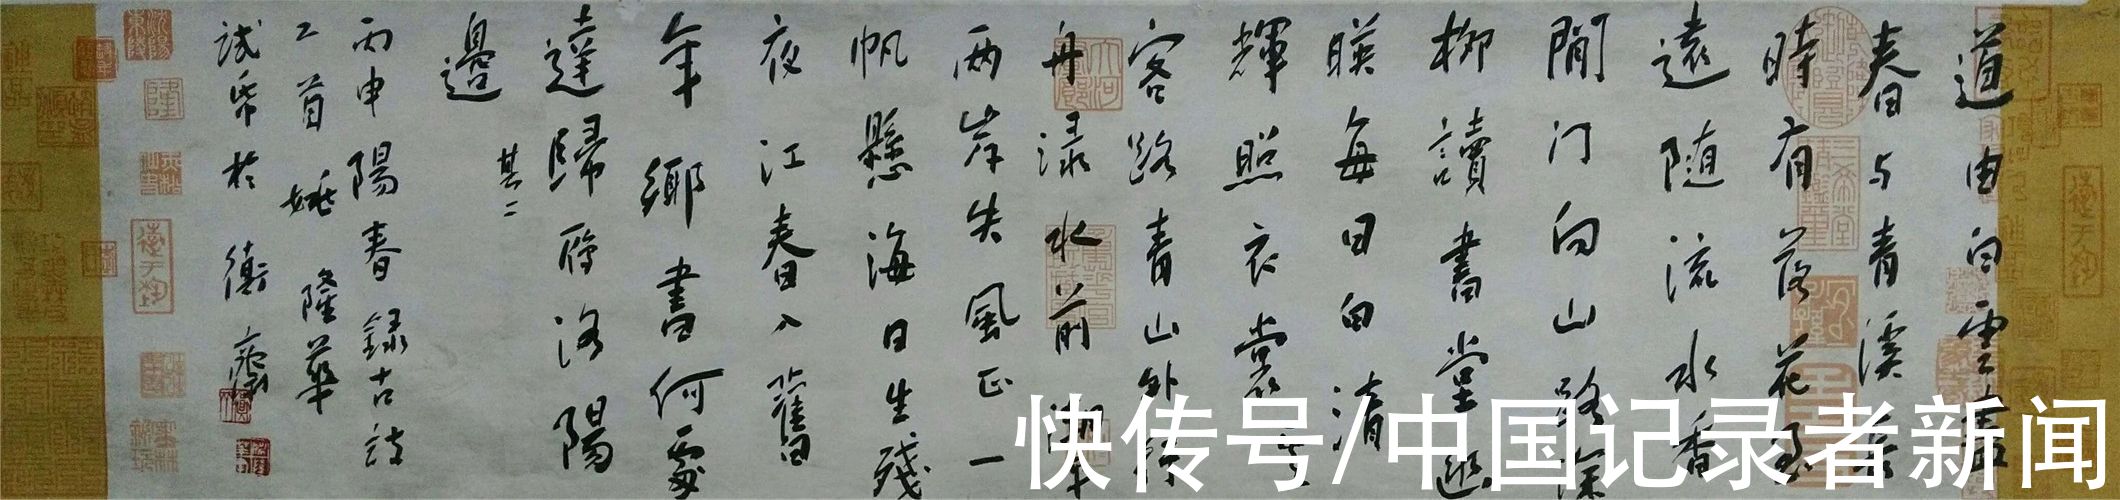 道由白雲盡
春与青溪長
時有落花至
遠随流水香
閒门向山路深
柳讀書堂幽
暎每日白清
輝照衣裳
客路青山外行
舟渌水前潮平
两岸失風正一
帆懸海日生残
夜江春入舊
年鄉書何處
達歸雁洛陽
其二
邊
丙申陽春録古詩
二首 姚隆華
試帋於衡齋
快传号/中国记录者新闻